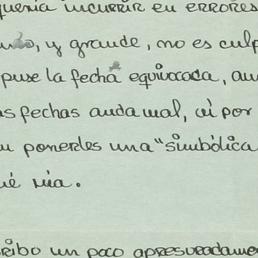 quería incurrir en errores
, y grande, no es culp
puse la fecha equivocada, au
as fechas anda mal, ni por
u ponerles una "simbólica
ué mia.
ribo un poco apresuradame